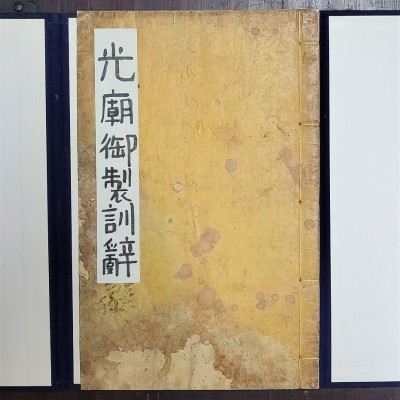 光廟御製訓辭